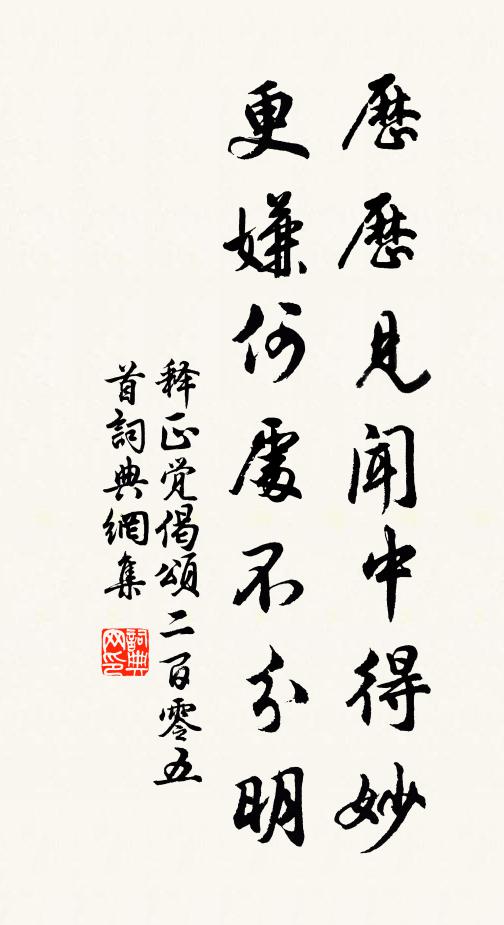 歷歷見聞中得妙
更嫌何處不分明
释正觉偈頌二百零五
首詞典網集
詞典网印